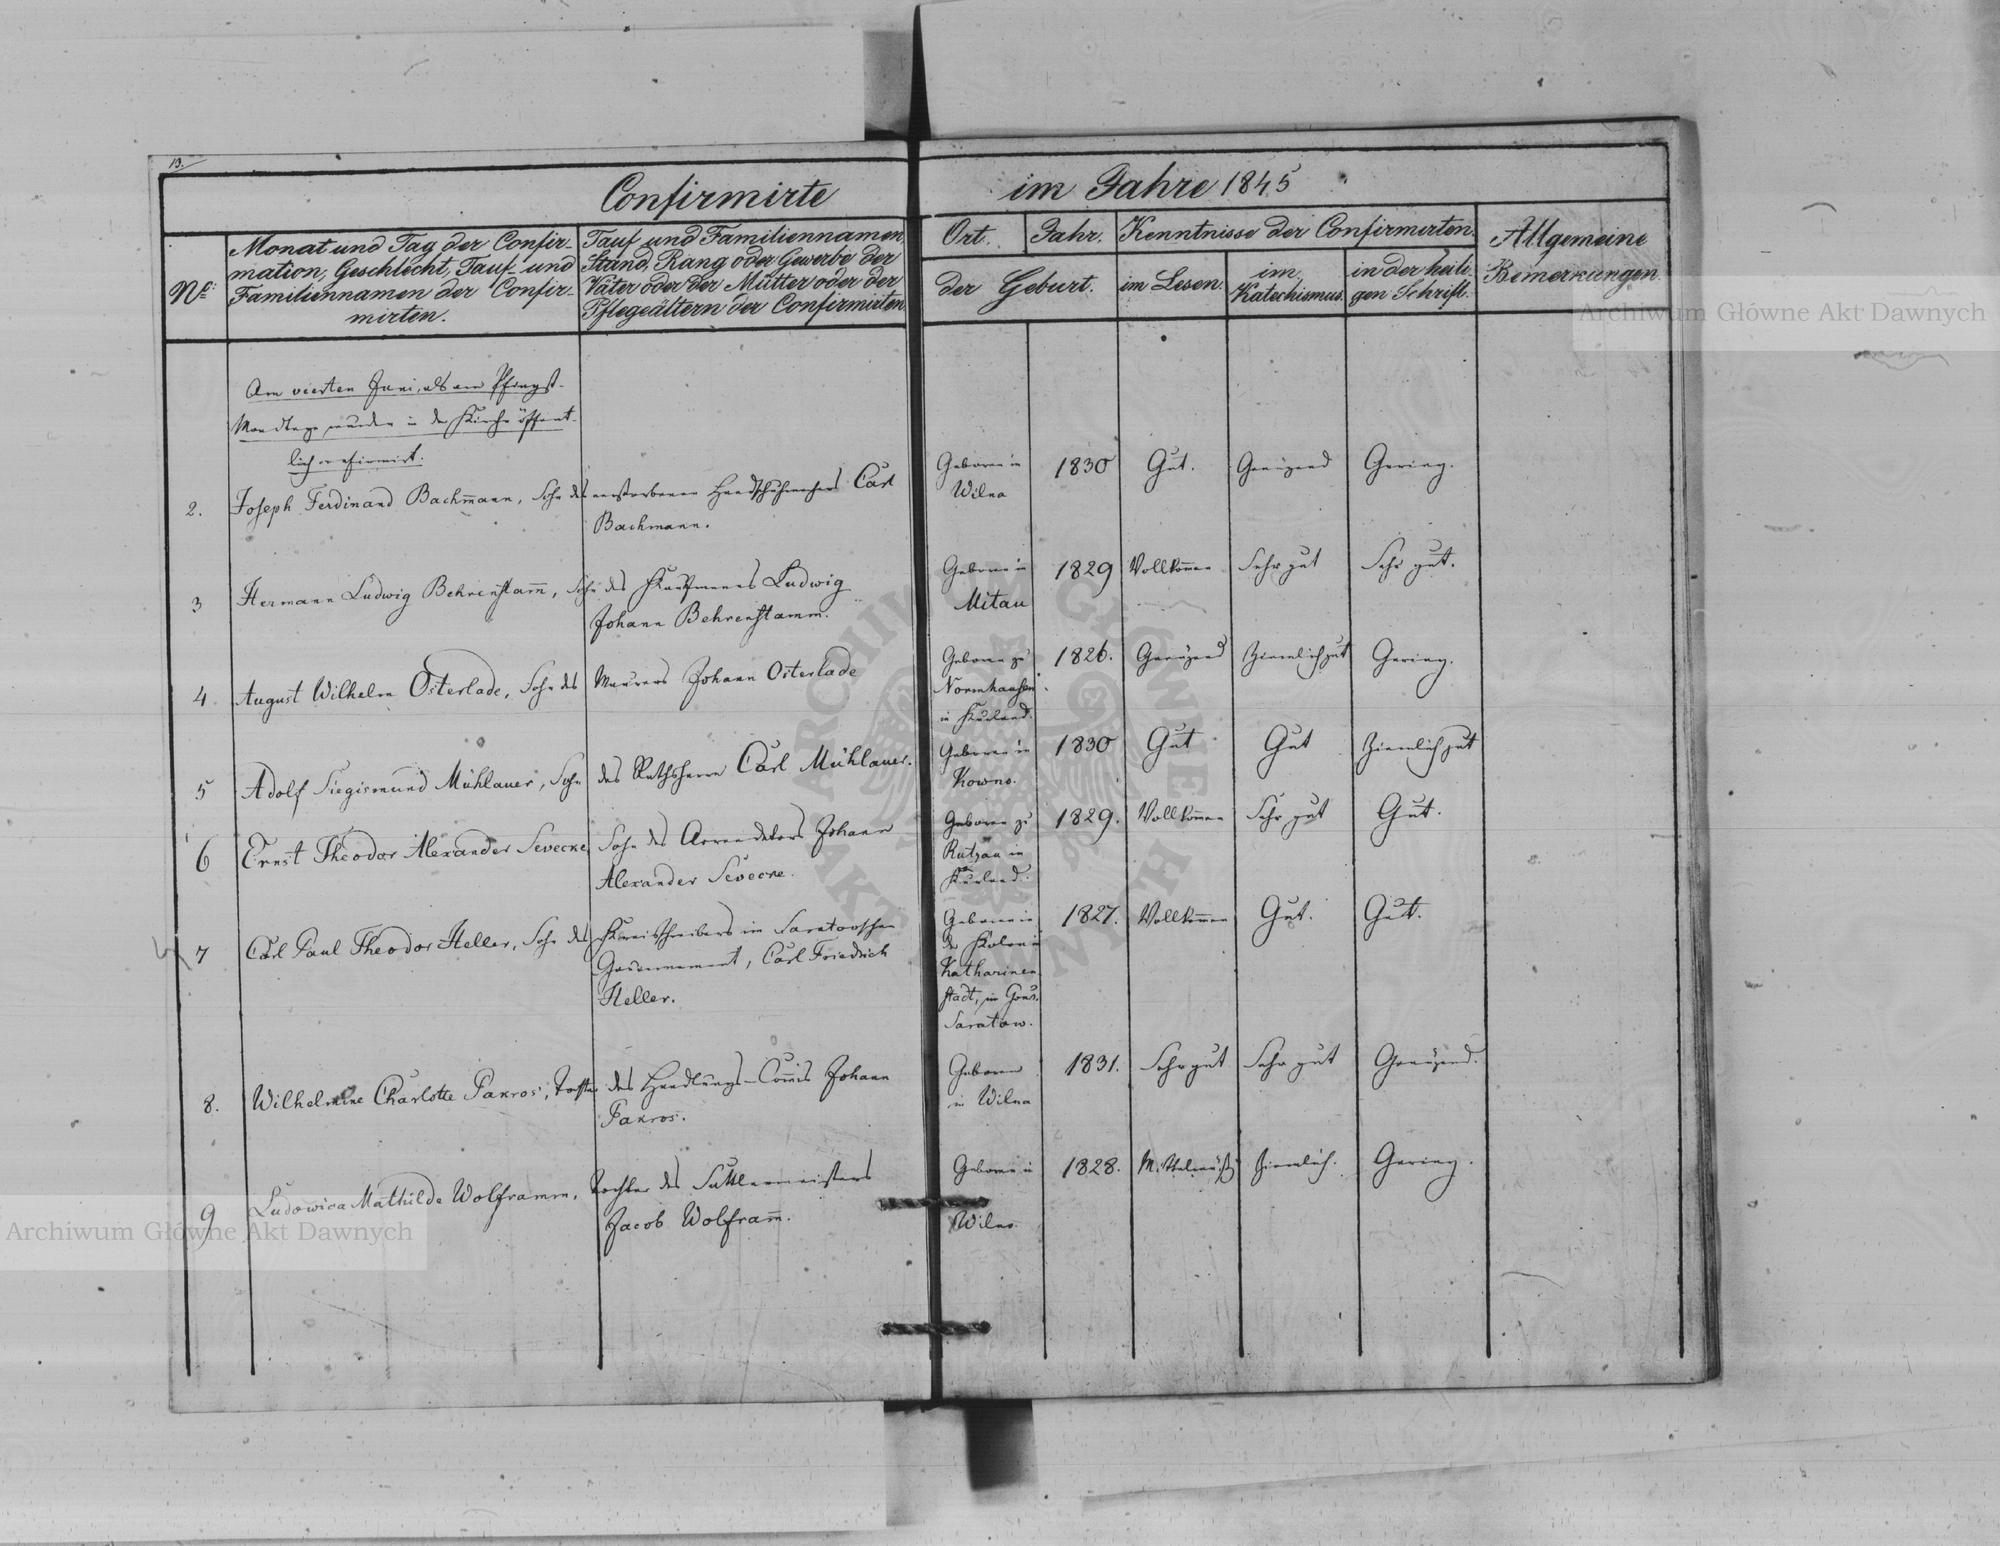 13.
Confirmirte im Jahre 1845
No:
Monat und Tag der Confir-
mation, Geschlecht, Tauf- und
Familiennamen der Confir-
mirten.
Tauf und Familiennamen,
Stand, Rang oder Gewerbe der
Väter oder der Mütter oder der
Pflegeältern der Confirmirten
Ort. Jahr.
der Geburt.
Kenntnisse der Confirmirten.
im Lesen.
im
Katechismus.
in der heili-
gen Schrift.
Allgemeine
Bemerkungen.
Am vierten Juni, als am Pfingst-
Montage wurden in der Kirche öffent-
lich confirmirt.
2. Joseph Ferdinand Bachmann, Sohn des verstorbenen Handschuhmachers Carl
Bachmann.
Geboren in
Wilna
1830 Gut. Genügend Gering.
3 Hermann Ludwig Behrenstamm, Sohn des Kaufmanns Ludwig
Johann Behrenstamm.
Geboren in
Mitau
1829 Vollkommen Sehr gut Sehr gut.
4 August Wilhelm Osterlade, Sohn des Maurers Johann Osterlade
Geboren zu
Normhausen
in Kurland.
1826. Genügend Ziemlich gut Gering.
5 Adolf Siegismund Mühlauer, Sohn des Rathsherrn Carl Mühlauer.
Geboren in
Kowno.
1830 Gut Gut Ziemlich gut
6 Ernst Theodor Alexander Sevecke, Sohn des Arrendators Johann
Alexander Sevecke.
Geboren zu
Rutzau in
Kurland.
1829. Vollkommen Sehr gut Gut.
7 Carl Paul Theodor Heller, Sohn des Kreisschreibers im Saratowschen
Gouvernement, Carl Friedrich
Heller.
Geboren in
der Kolonie
Katharinen-
stadt, im Gouv.
Saratow.
1827. Vollkommen Gut. Gut.
8. Wilhelmine Charlotte Pakros, Tochter des Handlungs-Commis Johann
Pakros.
Geboren
in Wilna
1831. Sehr gut Sehr gut Genügend.
9 Ludowica Mathilde Wolframm, Tochter des Sattlermeisters
Jacob Wolframm.
Geboren in
Wilna.
1828. Mittelmäßig Ziemlich. Gering.
Archiwum Główne Akt Dawnych
Archiwum Główne Akt Dawnych
ARCHIWUM GŁÓWNE AKT DAWNYCH